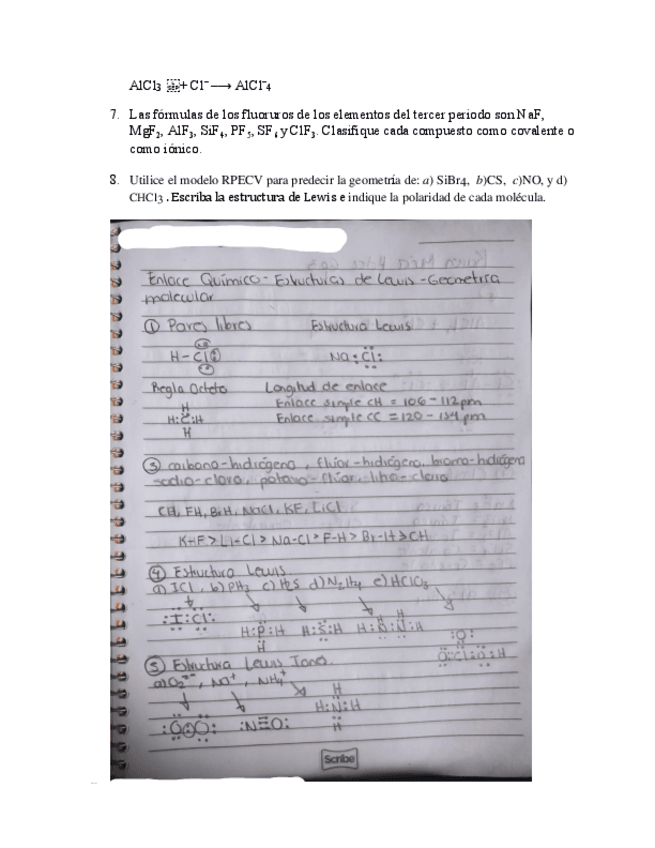 AlCl3 + Cl⁻ ⟶ AlCl⁻4
7. Las fórmulas de los fluoruros de los elementos del tercer periodo son NaF,
MgF2, AlF3, SiF4, PF5, SF6 y ClF3. Clasifique cada compuesto como covalente o
como iónico.
8. Utilice el modelo RPECV para predecir la geometría de: a) SiBr4, b)CS, c)NO, y d)
CHCl3 . Escriba la estructura de Lewis e indique la polaridad de cada molécula.
Enlace Químico - Estructuras de Lewis - Geometria
molecular
① Pares libres Estructura Lewis
H - Cl Na : Cl :
Regla Octeto Longitud de enlace
Enlace simple CH = 106 - 112 pm
Enlace simple CC = 120 - 154 pm
H
H : C : H
H
③ carbono-hidrógeno, flúor-hidrógeno, bromo-hidrógeno
sodio-cloro, potasio-flúor, litio-cloro
CH, FH, BrH, NaCl, KF, LiCl
K-F > Li-Cl > Na-Cl > F-H > Br-H > CH
④ Estructura Lewis
a) ICl, b) PH3 c) H2S d) N2H4 e) HClO3
: I : Cl :
H : P : H H : S : H H : N : N : H
H
: O :
O : Cl : O : H
⑤ Estructura Lewis Iones
a) O2²⁻, NO⁺, NH4⁺
H
H : N : H
H
: O O : : N ≡ O :
Scribe